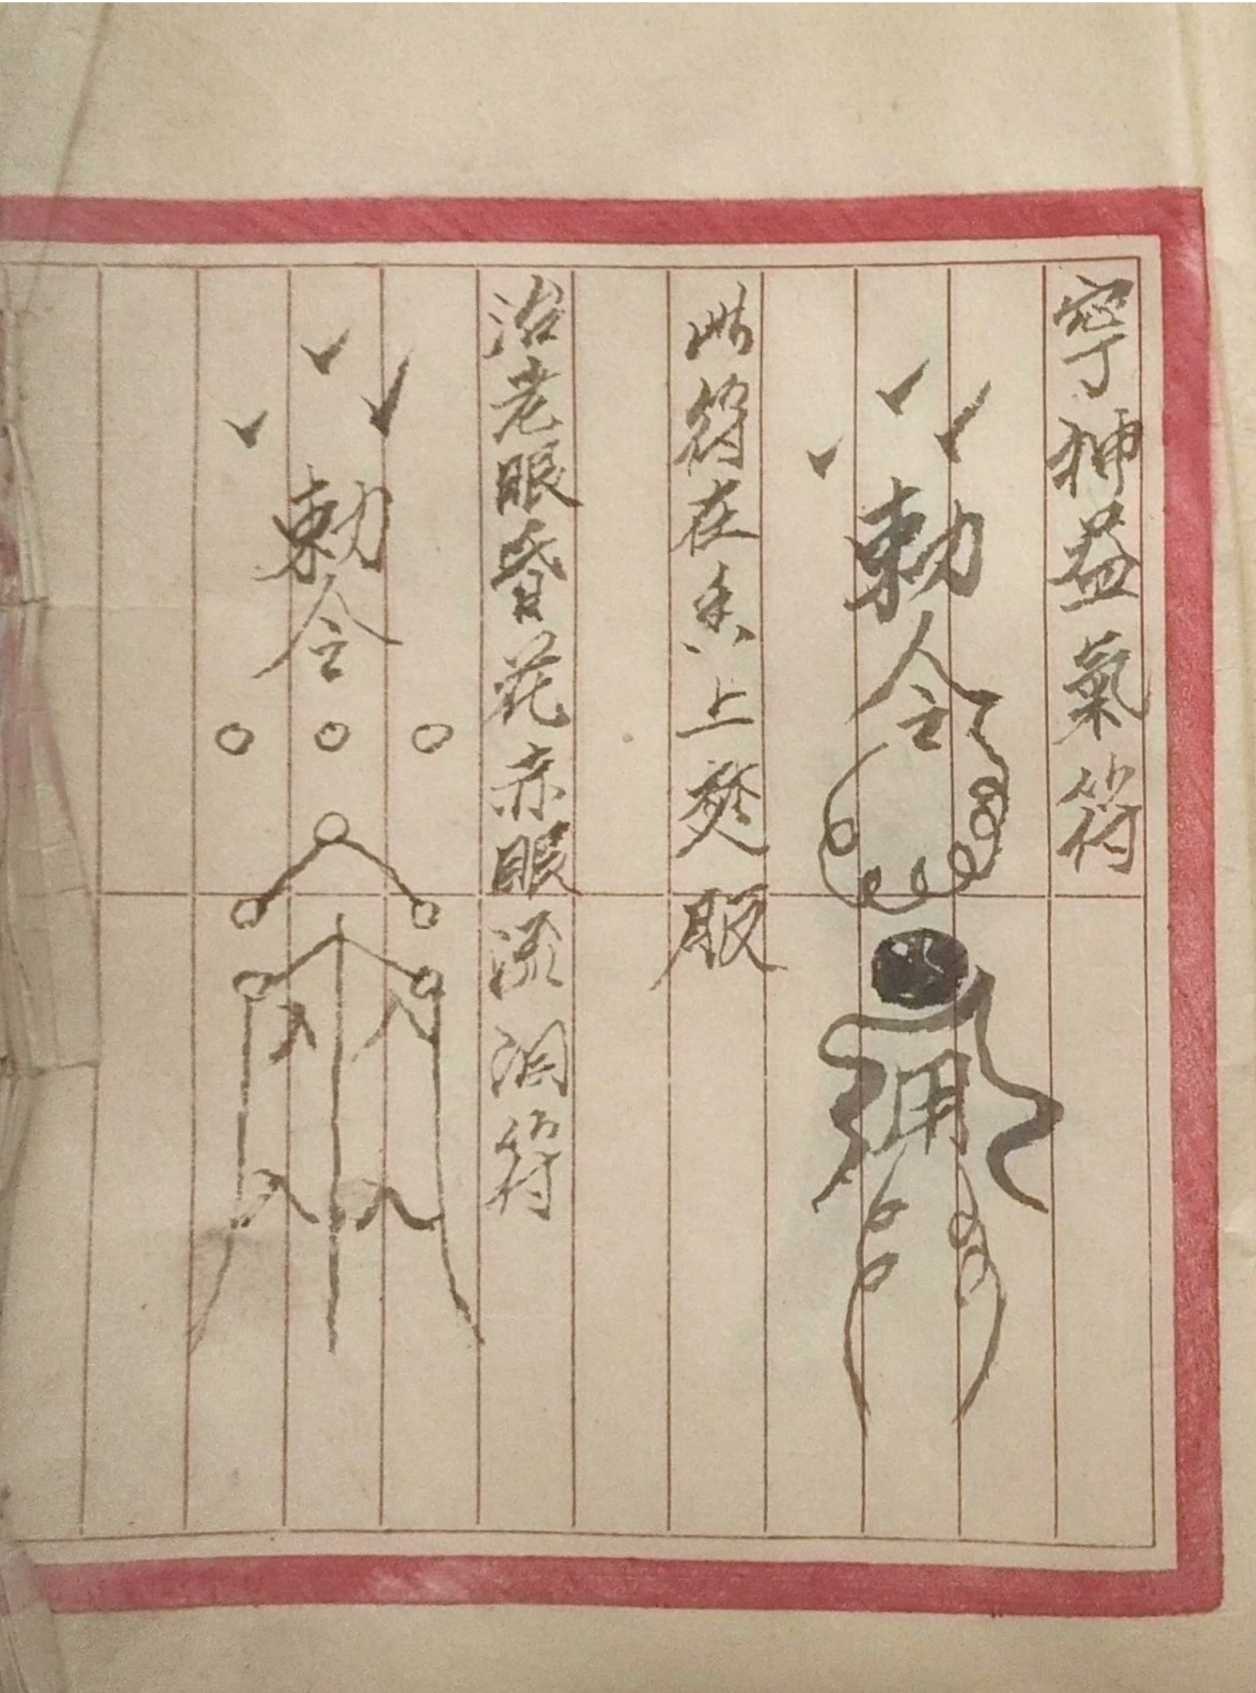 寧神益氣符
勅令
此符在香上焚服
治老眼昏花赤眼流泪符
勅令